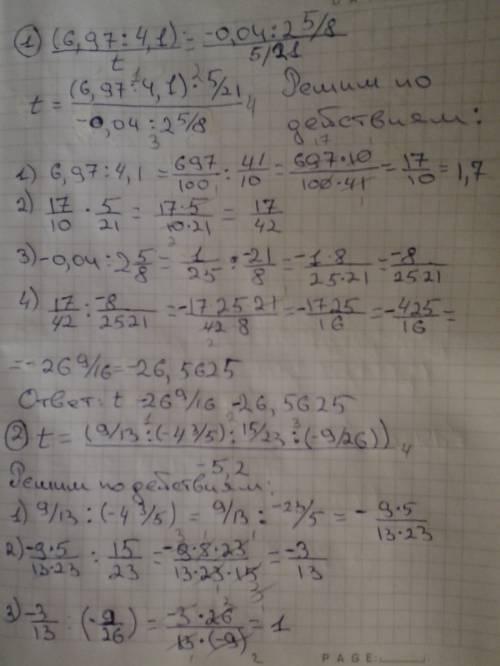 ① (6,97:4,1)/t = -0,04:2 5/8 / 5/21
t = (6,97:4,1)·5/21 / -0,04:2 5/8 Решим по
действиям:
1) 6,97:4,1 = 697/100 : 41/10 = 697·10/100·41 = 17/10 = 1,7
2) 17/10 · 5/21 = 17·5/10·21 = 17/42
3) -0,04:2 5/8 = 1/25 : -21/8 = -1·8/25·21 = -8/25 21
4) 17/42 : -8/25 21 = -17 25 21/42·8 = -17 25/16 = -425/16 =
= -26 9/16 = -26,5625
Ответ: t -26 9/16 -26,5625
② t = (9/13:(-4 3/5):15/23:(-9/26))
-5,2
Решим по действиям:
1) 9/13:(-4 3/5) = 9/13:-23/5 = -9·5/13·23
2) -9·5/13·23 : 15/23 = -9·5·23/13·23·15 = -3/13
3) -3/13 : (-9/26) = -3·26/13·(-9) = 1
PAGE: